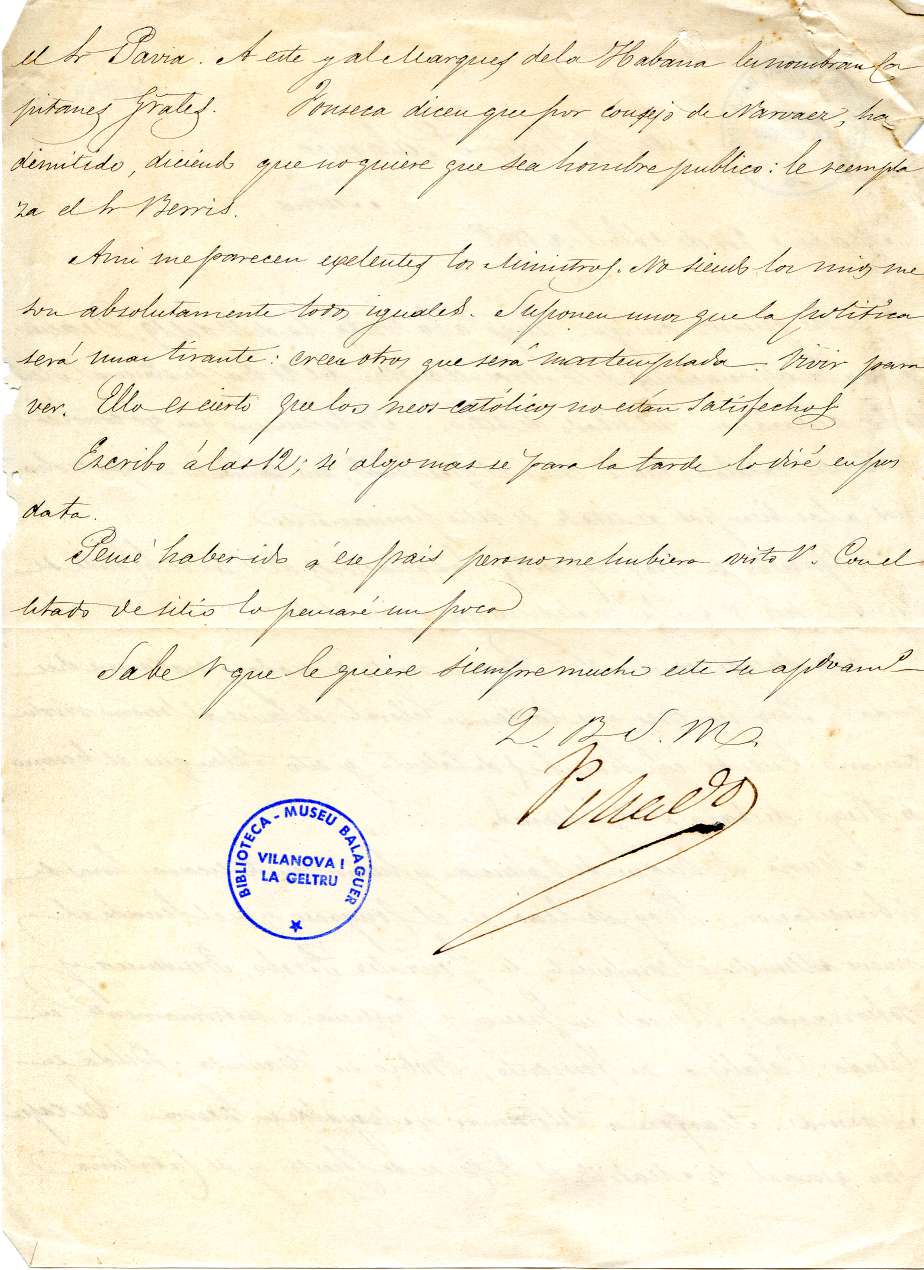 el Sr Pavia. A este y al Marques de la Habana les nombran Ca
pitanes Grales. Fonseca dicen que por consejo de Narvaez, ha
dimitido, diciendo que no quiere que sea hombre publico: le reempla
za el Sr Berris.
A mi me parecen exelentes los Ministros. No siendo los mios me
son absolutamente todos iguales. Suponen unos que la politica
será mas tirante: creen otros que será mas templada. Vivir para
ver. Ello es cierto que los neos-católicos no están satisfechos
Escribo á las 12; sí algo mas se para la tarde lo diré en pos
data.
Pensé haber ido á ese pais pero no me hubiera visto V. Con el
estado de sitio lo pensaré un poco
Sabe V que le quiere siempre mucho este su
Q. B S. M.
BIBLIOTECA - MUSEU BALAGUER
VILANOVA I
LA GELTRU